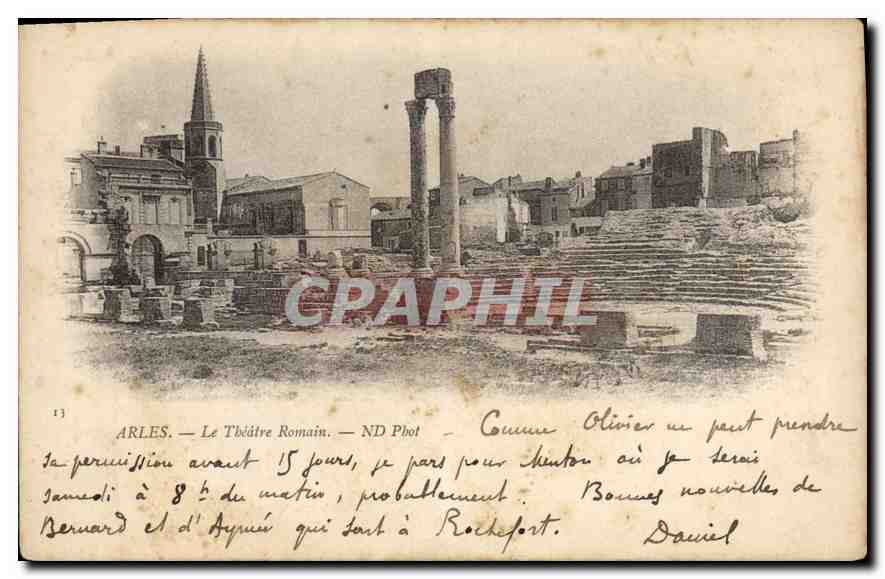 CPAPHIL
13
ARLES. — Le Théâtre Romain. — ND Phot — Comme Olivier ne peut prendre
sa permission avant 15 jours, je pars pour Menton où je serai
samedi à 8h du matin, probablement. Bonnes nouvelles de
Bernard et d'Aymé qui sont à Rochefort.
Daniel